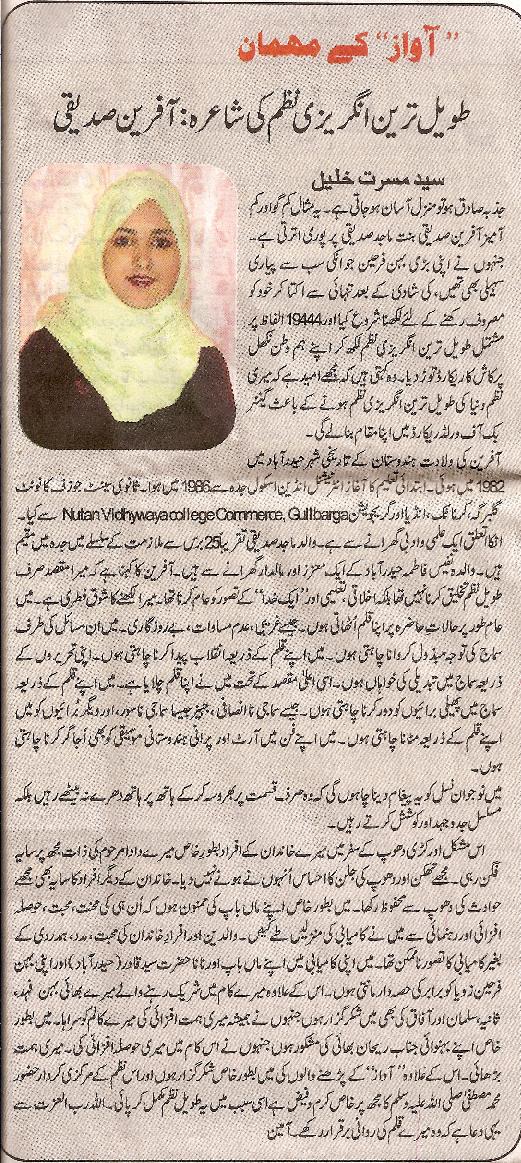 ”آواز“ کے مہمان
طویل ترین انگریزی نظم کی شاعرہ: آفرین صدیقی
سید مسرت خلیل
جذبہ صادق ہو تو منزل آسان ہو جاتی ہے۔ یہ مثال کم گو اور کم
آمیز آفرین صدیقی بنت ماجد صدیقی پر پوری اترتی ہے۔
جنہوں نے اپنی بڑی بہن فرحین جو انکی سب سے پیاری
سہیلی بھی تھیں، کی شادی کے بعد تنہائی سے اکتا کر خود کو
مصروف رکھنے کے لئے لکھنا شروع کیا اور 19444 الفاظ پر
مشتمل طویل ترین انگریزی نظم لکھ کر اپنے ہم وطن نکھل
پرکاش کا ریکارڈ توڑ دیا۔ وہ کہتی ہیں کہ مجھے امید ہے کہ میری
نظم دنیا کی طویل ترین انگریزی نظم ہونے کے باعث گینیز
بک آف ورلڈ ریکارڈ میں اپنا مقام بنا لے گی۔
آفرین کی ولادت ہندوستان کے تاریخی شہر حیدرآباد میں
1982 میں ہوئی۔ ابتدائی تعلیم کا آغاز انٹرنیشنل انڈین اسکول جدہ سے 1986 میں ہوا۔ ثانوی سینٹ جوزف کانونٹ
گلبرگہ، کرناٹک، انڈیا اور گریجویشن Nutan Vidhywaya college Commerce, Gullbarga سے کیا۔
انکا تعلق ایک علمی و ادبی گھرانے سے ہے۔ والد ماجد صدیقی تقریباً 25 برس سے ملازمت کے سلسلے میں جدہ میں مقیم
ہیں۔ والدہ نفیس فاطمہ حیدرآباد کے ایک معزز اور مالدار گھرانے سے ہیں۔ آفرین کا کہنا ہے کہ میرا مقصد صرف
طویل نظم تخلیق کرنا نہیں تھا بلکہ اخلاقی، تعلیمی اور ”ایک خدا“ کے تصور کو عام کرنا تھا۔ میرا لکھنے کا شوق فطری ہے۔ میں
عام طور پر حالات حاضرہ پر اپنا قلم اُٹھاتی ہوں۔ جیسے غریبی، عدم مساوات، بے روزگاری۔ میں ان مسائل کی طرف
سماج کی توجہ مبذول کروانا چاہتی ہوں۔ میں اپنے قلم کے ذریعہ انقلاب پیدا کرنا چاہتی ہوں۔ اپنی تحریروں کے
ذریعہ سماج میں تبدیلی کی خواہاں ہوں۔ اسی اعلیٰ مقصد کے تحت میں نے اپنا قلم چلایا ہے۔ میں اپنے قلم کے ذریعہ
سماج میں پھیلی برائیوں کو دور کرنا چاہتی ہوں۔ جیسے سماجی نا انصافی، جہیز جیسا سماجی ناسور، اور دیگر بُرائیوں کو میں
اپنے قلم کے ذریعہ مٹانا چاہتی ہوں۔ میں اپنے فن میں آرٹ اور پرانی ہندوستانی موسیقی کو بھی اُجاگر کرنا چاہتی
ہوں۔
میں نوجوان نسل کو یہ پیغام دینا چاہوں گی کہ وہ صرف قسمت پر بھروسہ کر کے ہاتھ پر ہاتھ دھرے نہ بیٹھے رہیں بلکہ
مسلسل جدوجہد اور کوشش کرتے رہیں۔
اس مشکل اور کڑی دھوپ کے سفر میں میرے خاندان کے افراد بطور خاص میرے دادا مرحوم کی ذات مجھ پر سایہ
فگن رہی۔ مجھے تھکن اور دھوپ کی جلن کا احساس اُنہوں نے ہونے نہیں دیا۔ خاندان کے دیگر افراد کا سایہ بھی مجھے
حوادث کی دھوپ سے محفوظ رکھا۔ میں بطور خاص اپنے ماں باپ کی ممنون ہوں کہ اُن ہی کی محنت، محبت، حوصلہ
افزائی اور رہنمائی سے میں نے کامیابی کی منزلیں طے کیں۔ والدین اور افراد خاندان کی محبت، مدد، ہمدردی کے
بغیر کامیابی کا تصور ناممکن تھا۔ میں اپنی کامیابی میں اپنے ماں باپ اور نانا حضرت سید قادر (حیدرآباد) اور اپنی بہن
فرحین زویا کو برابر کی حصہ دار مانتی ہوں۔ اس کے علاوہ میرے کام میں شریک رہنے والے میرے بھائی بہن فہد،
ثانیہ، سلمان اور آفاق کی بھی میں شکر گزار ہوں جنہوں نے ہمیشہ میری ہمت افزائی کی میرے کام کو سراہا۔ میں بطور
خاص اپنے بہنوئی جناب ریحان بھائی کی مشکور ہوں جنہوں نے اس کام میں میری حوصلہ افزائی کی۔ میری ہمت
بڑھائی۔ اس کے علاوہ ”آواز“ کے پڑھنے والوں کی میں بطور خاص شکر گزار ہوں اور اس نظم کے مرکزی کردار حضور
محمد مصطفیٰ صلی اللہ علیہ وسلم کا مجھ پر خاص کرم و فیض ہے اسی سبب میں یہ طویل نظم مکمل کر پائی۔ اللہ رب العزت سے
یہی دعا ہے کہ وہ میرے قلم کی روانی برقرار رکھے۔ آمین